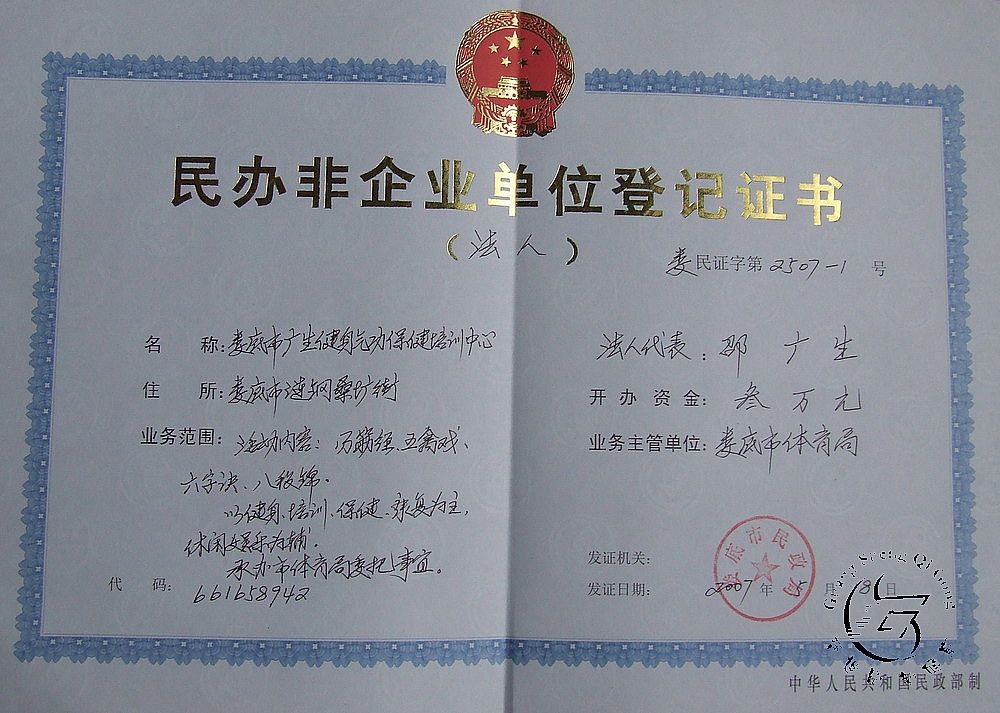 民办非企业单位登记证书
（法人）
娄民证字第2507-1号
名称：娄底市广生健身气功保健培训中心
住所：娄底市涟钢桑坪街
业务范围：活动内容：易筋经、五禽戏、
六字诀、八段锦.
以健身、培训、保健、康复为主,
休闲娱乐为辅.
承办市体育局委托事宜。
代码：661658942
法人代表：邵广生
开办资金：叁万元
业务主管单位：娄底市体育局
发证机关：
娄底市民政局
发证日期：2007年5月18日
Guang Sheng Qi Gong
中华人民共和国民政部制